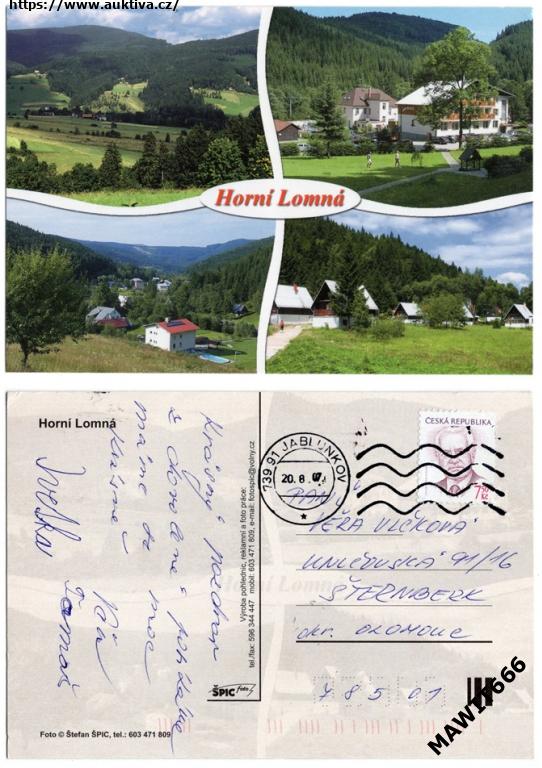 https://www.auktiva.cz/
Horní Lomná
Horní Lomná
Krásný pozdrav
z dovolené posíláme
máme se moc
krásně
Tomáš
Výroba pohlednic, reklamní a foto práce:
tel./fax: 596 344 447 mobil: 603 471 809, e-mail: fotospic@volny.cz
ŠPIC Foto
Foto © Štefan ŠPIC, tel.: 603 471 809
739 91 JABLUNKOV
20.8.07
ČESKÁ REPUBLIKA
7,50
Kč
PANÍ
VĚRA VLČKOVÁ
91/16
ŠTERNBERK
okr. OLOMOUC
78501
MAW17666